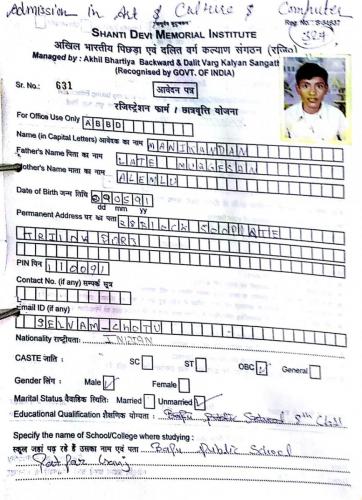 Admission in Art & Culture & Computer
SHANTI DEVI MEMORIAL INSTITUTE
अखिल भारतीय पिछड़ा एवं दलित वर्ग कल्याण संगठन (रजि०)
Managed by : Akhil Bhartiya Backward & Dalit Varg Kalyan Sangath
(Recognised by GOVT. OF INDIA)
Sr. No.: 631
आवेदन पत्र
रजिस्ट्रेशन फार्म / छात्रवृत्ति योजना
For Office Use Only ABBD
Name (in Capital Letters) आवेदक का नाम MANIKANDAN
Father's Name पिता का नाम LATE MURGESAN
Mother's Name माता का नाम ALEMLU
Date of Birth जन्म तिथि 090591
dd mm yy
Permanent Address घर का पता
PIN पिन 110091
Contact No. (if any) सम्पर्क सूत्र
Email ID (if any)
SELVAM-CHOTU
Nationality राष्ट्रीयता: INDIAN
CASTE जाति : SC ST OBC General
Gender लिंग : Male Female
Marital Status वैवाहिक स्थिति: Married Unmarried
Educational Qualification शैक्षणिक योग्यता : Bapu Public School 8th Class
Specify the name of School/College where studying :
स्कूल जहां पढ़ रहे हैं उसका नाम एवं पता Bapu Public School
Pat Par Ganj